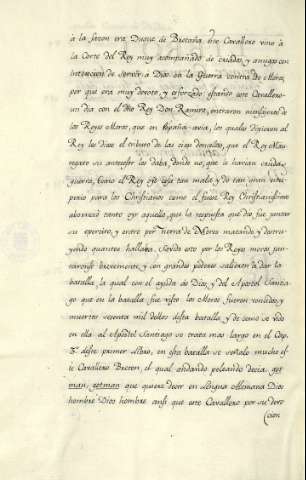 à la sazon era Duque de Bretaña. Este Cavallero vino a
la Corte del Rey muy acompañado de criados, y amigos con
intencion de servir a Dios en la Guerra contra los Moros,
por que era muy devoto, y esforzado: estando este Cavallero
un dia con el dho Rey Don Ramiro, entraron mensageros de
los Reyes Moros, que en España avia, los quales dixeron al
Rey les diese el tributo de las cien doncellas, que el Rey Mau-
regato su antecesor les daba donde no, que le harian cruda
guerra, como el Rey oyó cosa tan mala, y de tan gran vitu-
perio para los Christianos como el fuese Rey Christianissimo
aborreció tanto oyr aquello, que la respuesta que dio, fue juntar
su exercito, y entro por tierra de Moros matando, y destru-
yendo quantos hallaba. Savido esto por los Reyes moros jun-
taronse brevemente, y con grandes poderes salieron à dar la
batalla, la qual con el ayuda de Dios, y del Apostol Santia-
go que en la batalla fue visto los Moros fueron vencidos, y
muertos setenta mil dellos desta batalla, y de como se vido
en ella al Apostol Santiago se trata mas largo en el Cap.
deste primer Libro, en esta batalla se señalo mucho es-
te Cavallero Breton, el qual andando peleando decia, got
man, gotman que quiere decir en lengua Alemana Dios
hombre Dios hombre ansi que este Cavallero por su devo
(cion